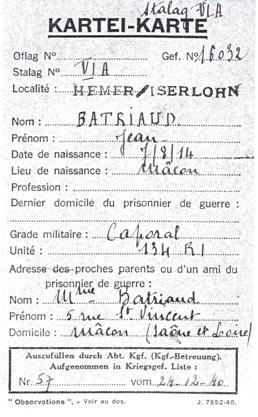 Stalag VI A
KARTEI-KARTE
Oflag Nº Gef. Nº 16032
Stalag Nº VI A
Localité : HEMER / ISERLOHN
Nom : BATRIAUD
Prénom : Jean
Date de naissance : 7/8/14
Lieu de naissance : Mâcon
Profession :
Dernier domicile du prisonnier de guerre :
Grade militaire : Caporal
Unité : 134 RI
Adresse des proches parents ou d'un ami du
prisonnier de guerre :
Nom : Mme Batriaud
Prénom : 5 rue St Vincent
Domicile : Mâcon (Saône et Loire)
Auszufüllen durch Abt. Kgf. (Kgf.-Betreuung).
Aufgenommen in Kriegsgef. Liste :
Nr. 57 vom 24-12-40
"Observations", - Voir au dos. J. 7852-40.